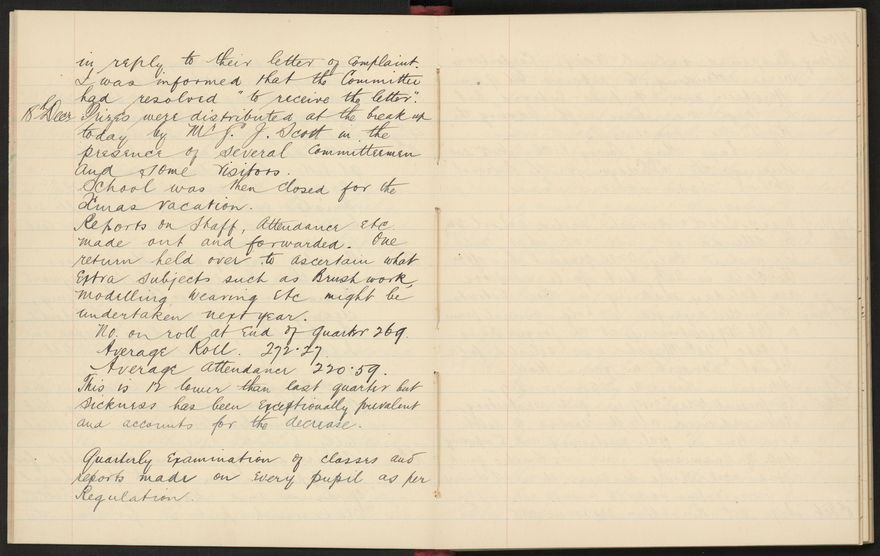 in reply to their letter of complaint.
I was informed that the Committee
had resolved "to receive the letter".
18th Decr Prizes were distributed at the break up
today by Mr J. J. Scott in the
presence of several Committeemen
and some visitors.
School was then closed for the
Xmas vacation.
Reports on Staff, Attendance Etc
made out and forwarded. One
return held over to ascertain what
Extra Subjects such as Brush work,
Modelling, Weaving Etc might be
undertaken next year.
No. on roll at End of Quarter 269.
Average Roll. 272.27
Average Attendance 220.59.
This is 12 lower than last quarter but
sickness has been Exceptionally prevalent
and accounts for the decrease.
Quarterly Examination of classes and
reports made on Every pupil as per
Regulation.